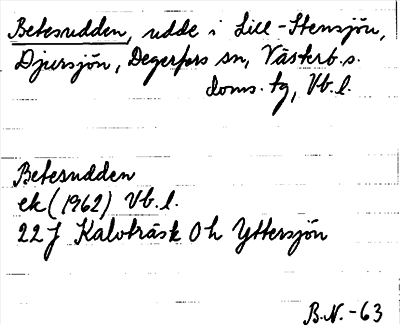 Betesudden, udde i Lill-Stensjön,
Djursjön, Degerfors sn, Västerb. s.
doms. tg, Vb. l.
Betesudden
ek (1962) Vb. l.
22 J Kalvträsk 0h Yttersjön
B.N. -63